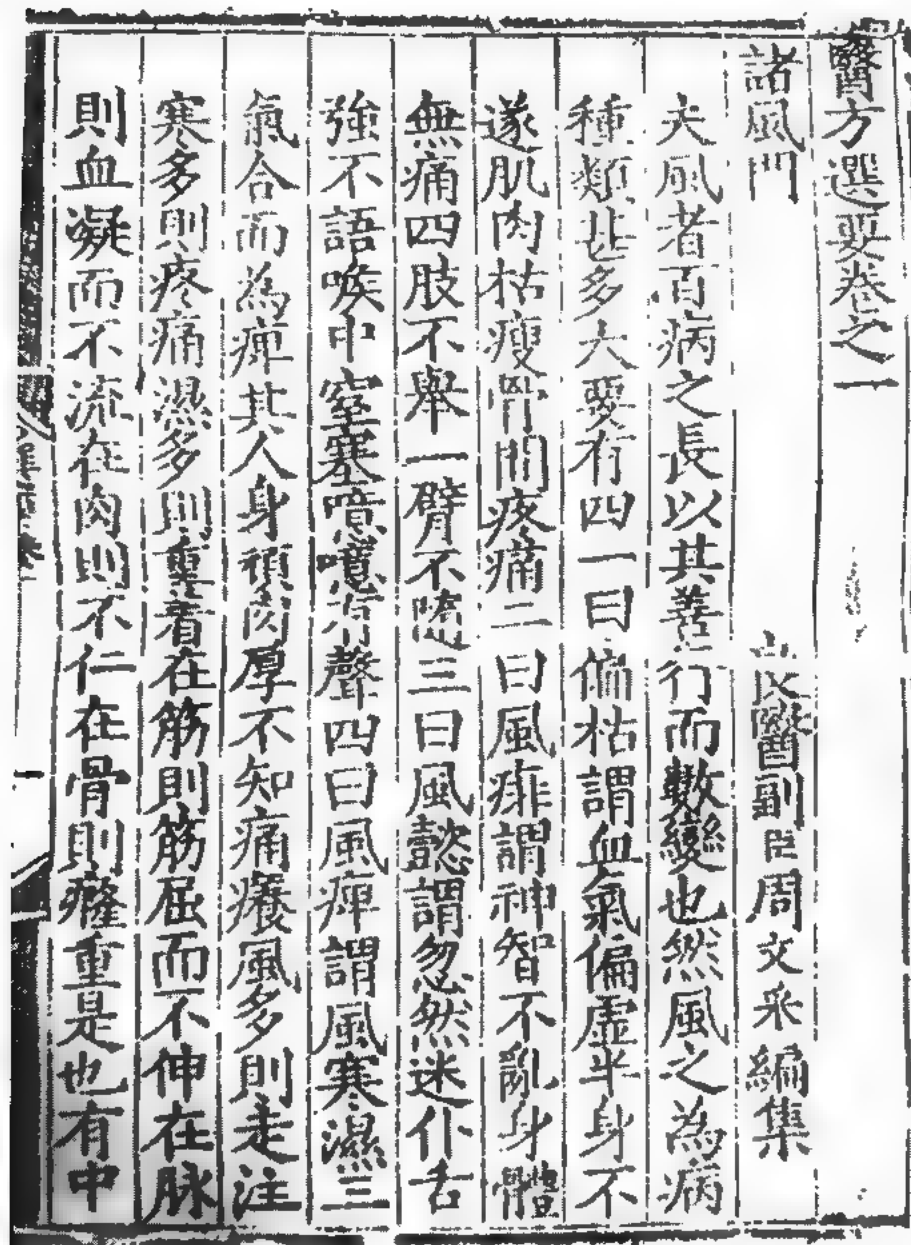 醫方選要卷之一
諸風門 良醫副臣周文采編集
夫風者百病之長以其善行而數變也然風之為病
種類甚多大要有四一曰偏枯謂血氣偏虛半身不
遂肌肉枯瘦骨間疼痛二曰風痱謂神智不亂身體
無痛四肢不舉一臂不隨三曰風懿謂忽然迷仆舌
強不語喉中窒塞噫噫有聲四曰風痺謂風寒濕三
氣合而為痺其人身頑肉厚不知痛癢風多則走注
寒多則疼痛濕多則重着在筋則筋屈而不伸在脉
則血凝而不流在肉則不仁在骨則癃重是也有中